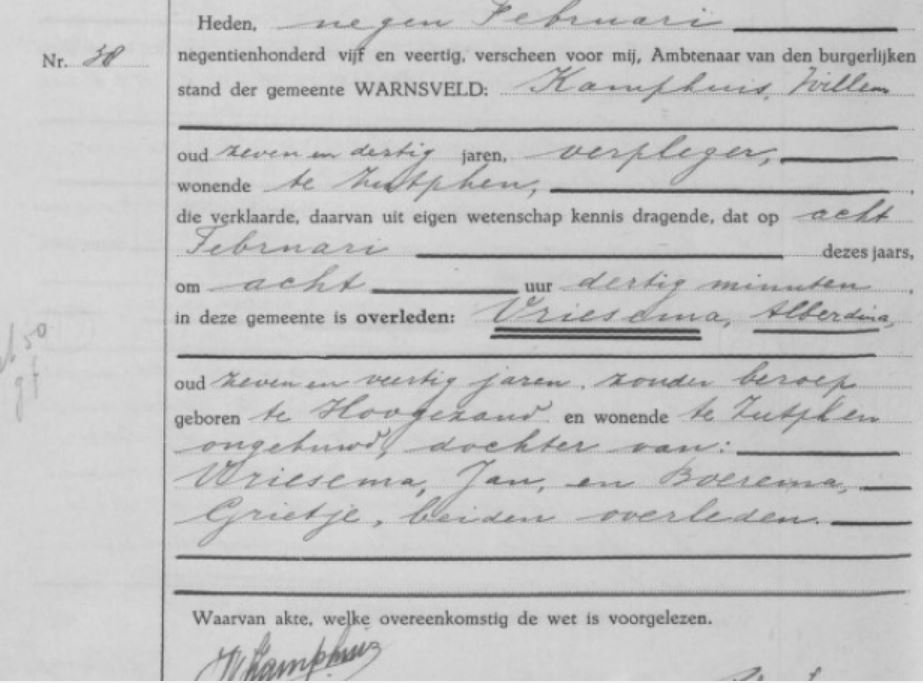 Heden, negen Februari
Nr. 38
negentienhonderd vijf en veertig, verscheen voor mij, Ambtenaar van den burgerlijken
stand der gemeente WARNSVELD: Kamphuis, Willem
oud zeven en dertig jaren, verpleger,
wonende te Zutphen,
die verklaarde, daarvan uit eigen wetenschap kennis dragende, dat op acht
Februari dezes jaars,
om acht uur dertig minuten,
in deze gemeente is overleden: Vriesema, Alberdina,
oud zeven en veertig jaren, zonder beroep
geboren te Hoogezand en wonende te Zutphen
ongehuwd, dochter van:
Vriesema, Jan, en Boerema,
Grietje, beiden overleden.
Waarvan akte, welke overeenkomstig de wet is voorgelezen.
WKamphuis